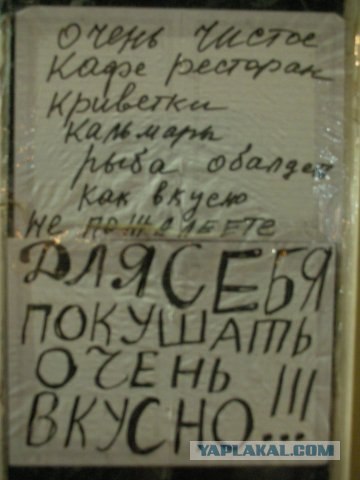 очень чистое
кафе ресторан
криветки
кальмары
рыба обалдет
как вкусно
не пожалеете
ДЛЯ СЕБЯ
ПОКУШАТЬ
ОЧЕНЬ
ВКУСНО...!!!
YAPLAKAL.COM